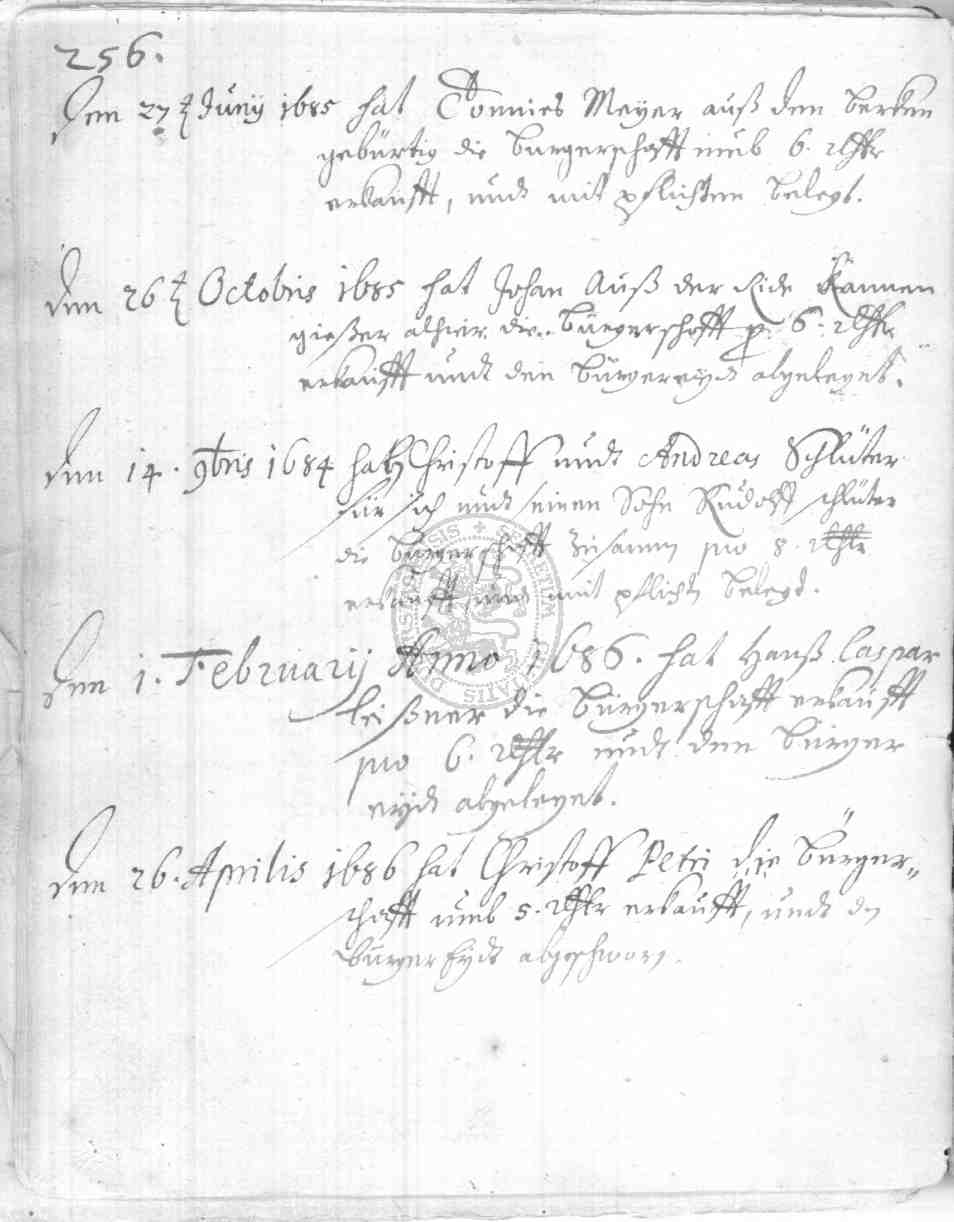 256.
Den 27t Junij 1685 hat Tönnies Meyer auß dem berken
gebürtig die bürgerschafft umb 6. Rthlr
erkaufft, undt mit pflichten belegt.
Den 26t Octobris 1685 hat Johan Auß der Ride Kannen
gießer alhier die bürgerschafft p 6. Rthlr
erkaufft undt den bürgereydt abgeleget.
Den 14. 9bris 1684 hat Christoff undt Andreas Schlüter
für sich undt seinen Sohn Rudolff schlüter
die bürgerschafft zusamen pro 8. Rthlr
erkaufft, undt mit pflicht belegt.
Den 1. Februarij Anno 1686. hat Hanß Caspar
leißner die bürgerschafft erkaufft
pro 6. Rthlr undt den bürger
eydt abgeleget.
Den 26. Aprilis 1686 hat Christoff Petri die bürger„
schafft umb 5. Rthlr erkaufft, undt den
bürger Eydt abgeschworn.